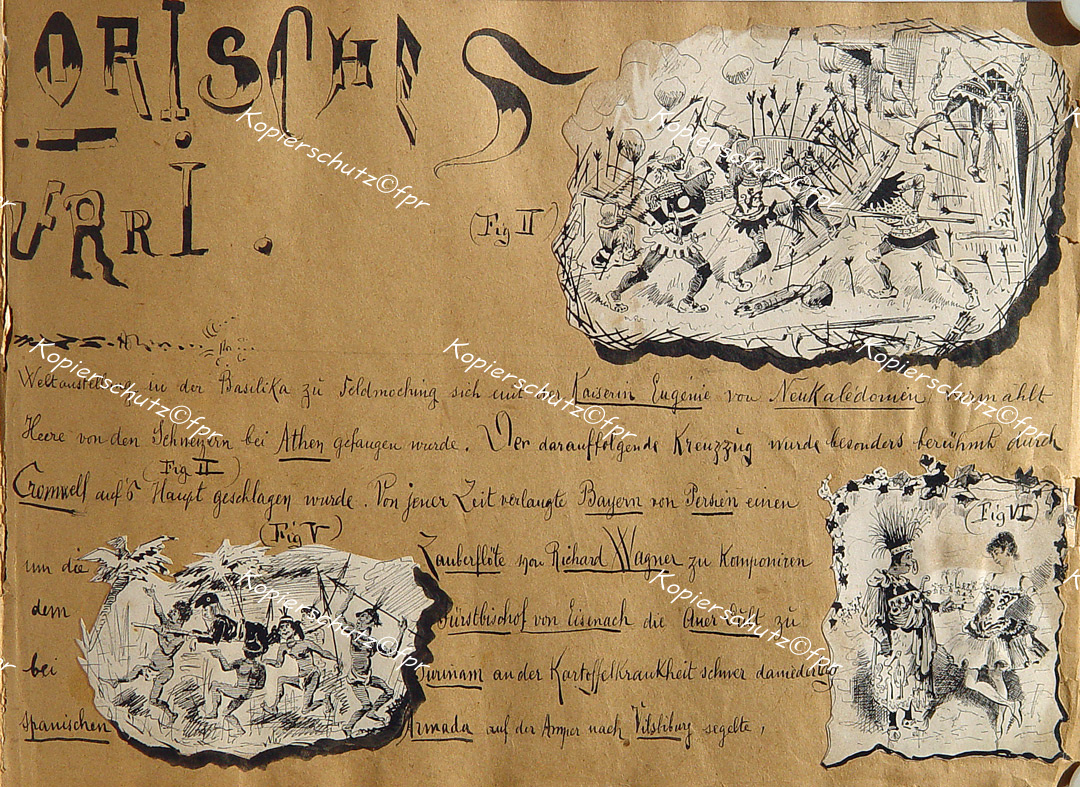 ORISCHES
URRI.
(Fig II)
Weltausstellung in der Basilika zu Feldmoching sich mit der Kaiserin Eugénie von Neukalédonien vermählt
Heere von den Schweizern bei Athen gefangen wurde. Der darauffolgende Kreuzzug wurde besonders berühmt durch
(Fig II)
Cromwell auf's Haupt geschlagen wurde. Von jener Zeit verlangte Bayern von Persien einen
(Fig V)
(Fig VI)
um die Zauberflöte von Richard Wagner zu Komponiren
dem Fürstbischof von Eisenach die Auer Dult zu
bei Surinam an der Kartoffelkrankheit schwer daniederlag
spanischen Armada auf der Amper nach Vilsbiburg segelte,
Kopierschutz©fpr
Kopierschutz©fpr
Kopierschutz©fpr
Kopierschutz©fpr
Kopierschutz©fpr
Kopierschutz©fpr
Kopierschutz©fpr